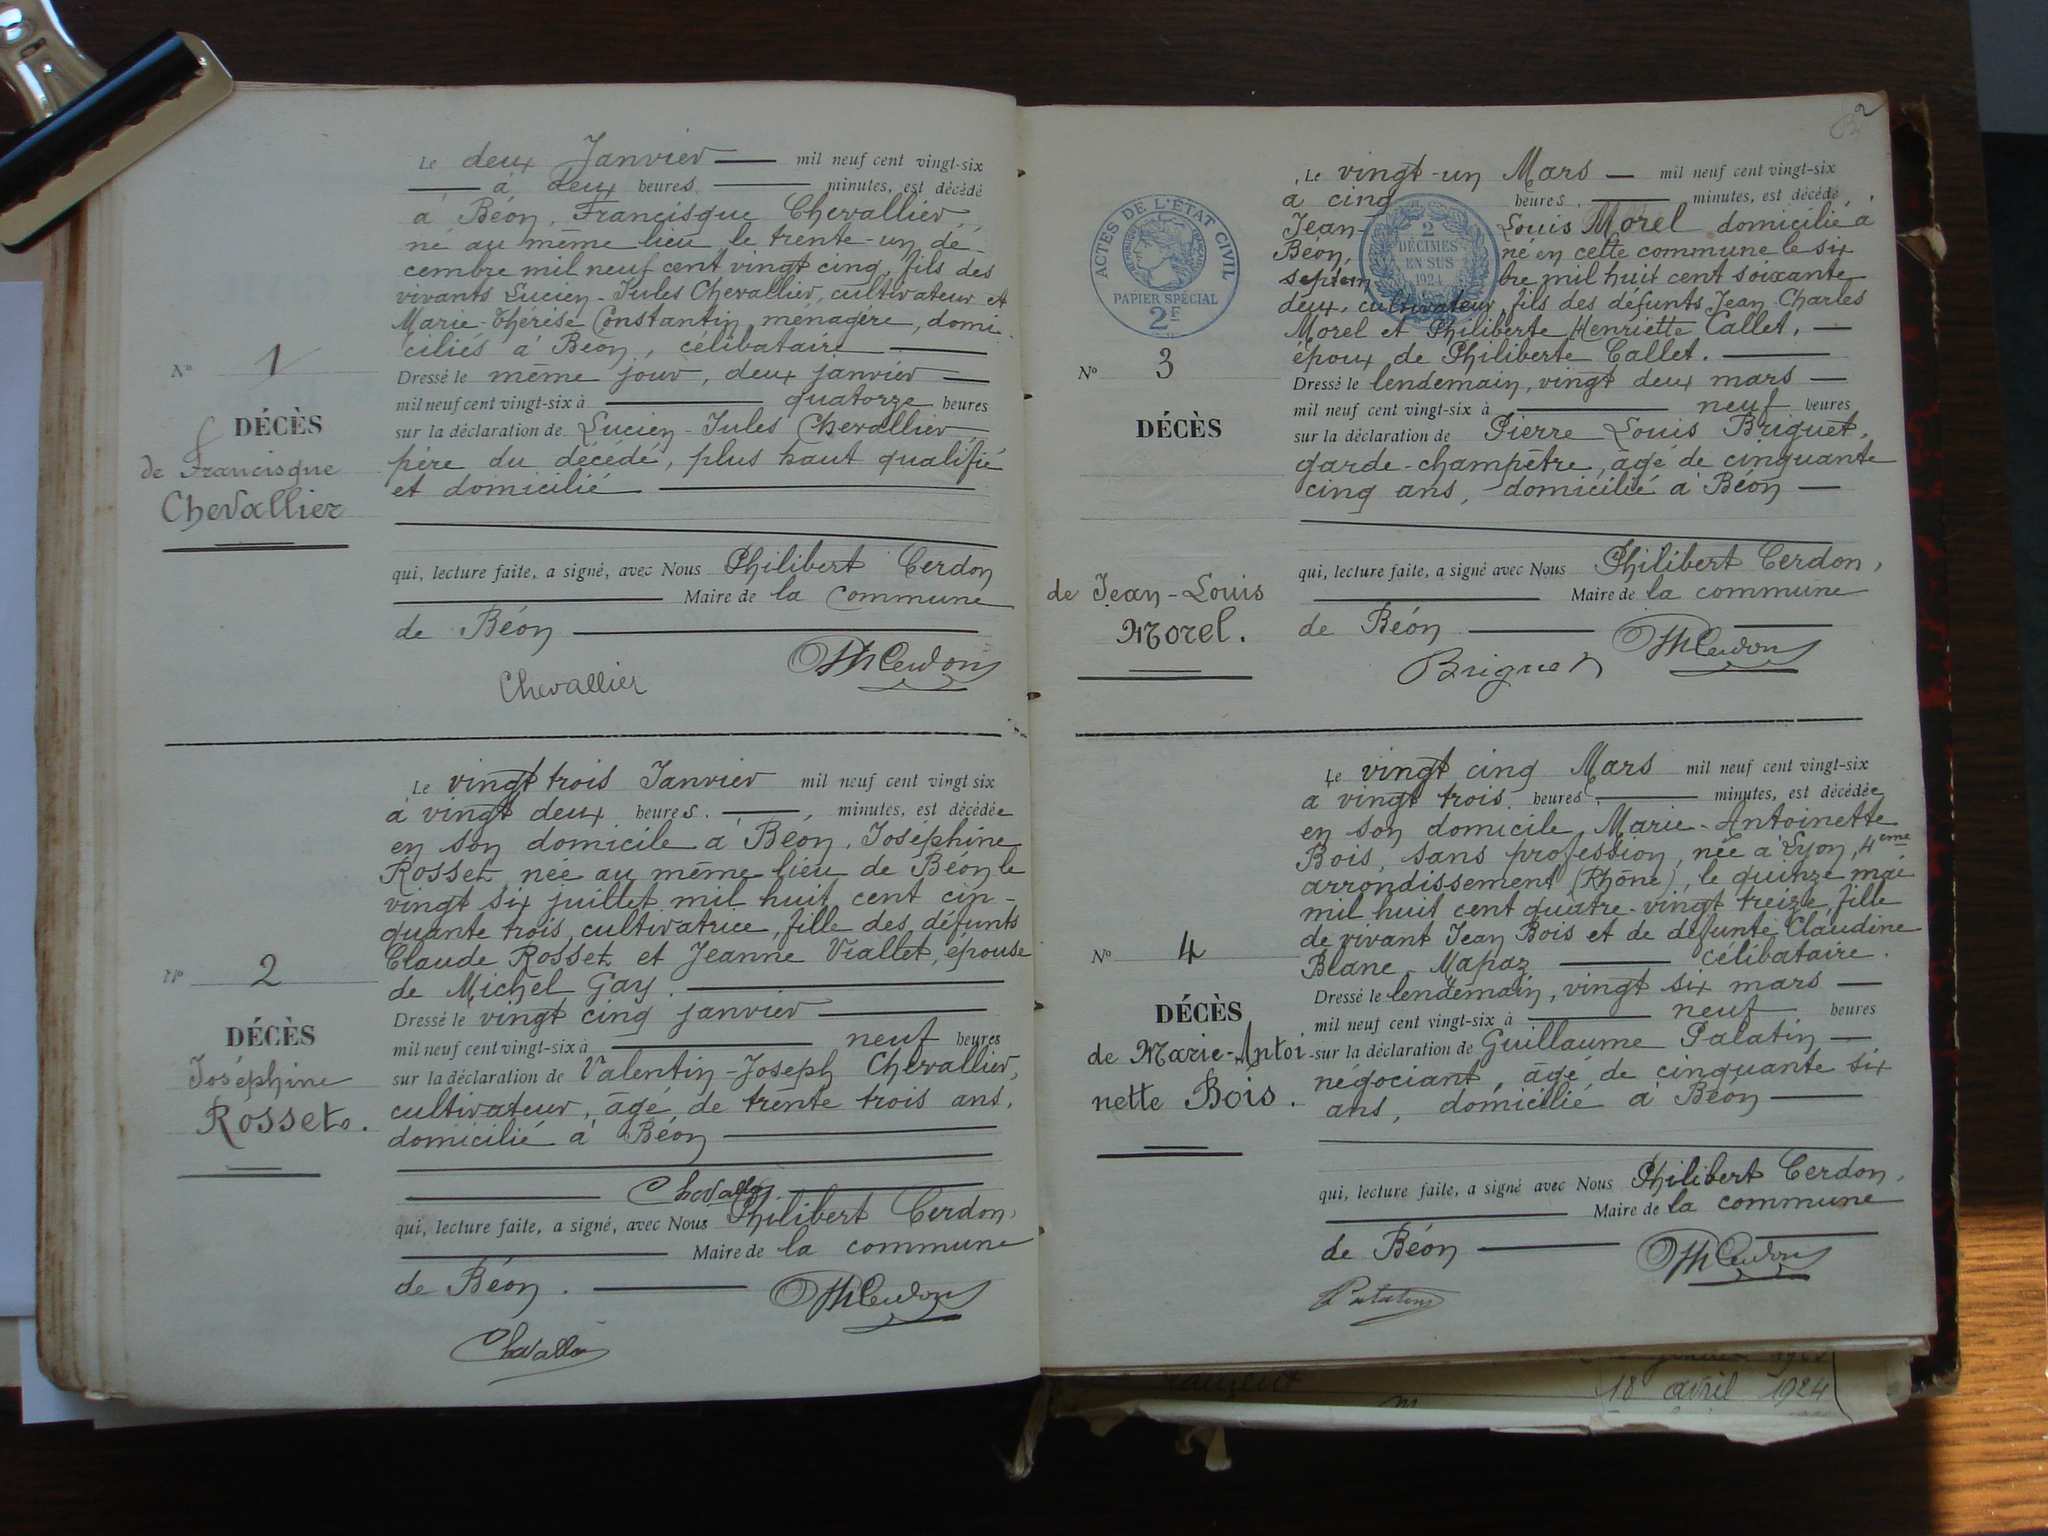 Le deux Janvier mil neuf cent vingt-six
à deux heures minutes, est décédé
à Béon, Francisque Chevallier,
né au même lieu le trente-un dé-
cembre mil neuf cent vingt cinq, fils des
vivants Lucien-Jules Chevallier, cultivateur et
Marie-Thérèse Constantin, ménagère, domi-
ciliés à Béon, célibataire
No 1
Dressé le même jour, deux janvier
mil neuf cent vingt-six à quatorze heures
DÉCÈS
sur la déclaration de Lucien-Jules Chevallier
de Francisque
père du décédé, plus haut qualifié
et domicilié
Chevallier
qui, lecture faite, a signé, avec Nous Philibert Cerdon
Maire de la Commune
de Béon
PhCerdon
Chevallier
Le vingt trois Janvier mil neuf cent vingt six
à vingt deux heures minutes, est décédée
en son domicile à Béon, Joséphine
Rosset, née au même lieu de Béon le
vingt six juillet mil huit cent cin-
quante trois, cultivatrice, fille des défunts
Claude Rosset et Jeanne Viallet, épouse
de Michel Gay.
No 2
Dressé le vingt cinq janvier
mil neuf cent vingt-six à neuf heures
DÉCÈS
sur la déclaration de Valentin-Joseph Chevallier,
Joséphine
cultivateur, âgé de trente trois ans,
Rosset.
domicilié à Béon
Chevallier
qui, lecture faite, a signé, avec Nous Philibert Cerdon,
Maire de la commune
de Béon.
PhCerdon
Chevallier
2
Le vingt-un Mars mil neuf cent vingt-six
à cinq heures minutes, est décédé
Jean-Louis Morel domicilié à
Béon, né en cette commune le six
septembre mil huit cent soixante
deux, cultivateur, fils des défunts Jean Charles
Morel et Philiberte Henriette Callet,
époux de Philiberte Callet.
ACTES DE L'ÉTAT CIVIL
PAPIER SPÉCIAL
2F
2
DÉCIMES
EN SUS
1924
No 3
Dressé le lendemain, vingt deux mars
mil neuf cent vingt-six à neuf heures
DÉCÈS
sur la déclaration de Pierre Louis Briguet,
garde-champêtre, âgé de cinquante
cinq ans, domicilié à Béon
qui, lecture faite, a signé avec Nous Philibert Cerdon,
de Jean-Louis
Maire de la commune
Morel.
de Béon
PhCerdon
Briguet
Le vingt cinq Mars mil neuf cent vingt-six
à vingt trois heures minutes, est décédée
en son domicile, Marie-Antoinette
Bois, sans profession, née à Lyon, 4eme
arrondissement (Rhône), le quinze mai
mil huit cent quatre-vingt treize, fille
de vivant Jean Bois et de défunte Claudine
Blanc Mapaz célibataire.
No 4
Dressé le lendemain, vingt six mars
mil neuf cent vingt-six à neuf heures
DÉCÈS
de Marie-Antoi-
nette Bois.
sur la déclaration de Guillaume Palatin
négociant, âgé de cinquante six
ans, domicilié à Béon
qui, lecture faite, a signé avec Nous Philibert Cerdon,
Maire de la commune
de Béon
PhCerdon
Palatin
18 avril 1924